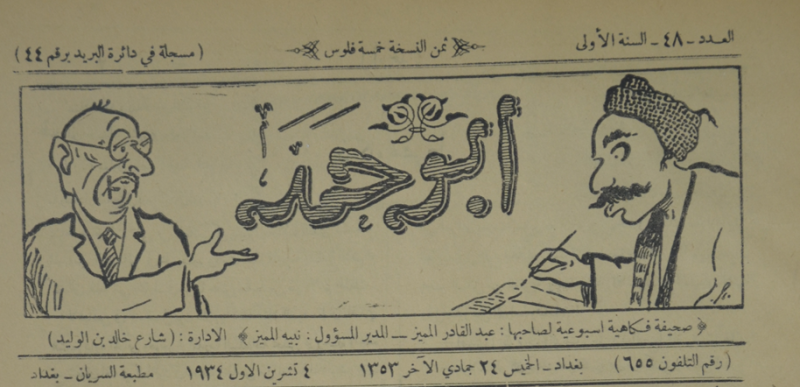 العدد - ٤٨ - السنة الأولى
ثمن النسخة خمسة فلوس
( مسجلة في دائرة البريد برقم ٤٤ )
أبو حمد
﴿ صحيفة فكاهية اسبوعية لصاحبها : عبد القادر المميز — المدير المسؤول : نبيه المميز ﴾ الادارة : ( شارع خالد بن الوليد )
( رقم التلفون ٦٥٥ ) بغداد - الخميس ٢٤ جمادي الآخر ١٣٥٣ ٤ تشرين الاول ١٩٣٤ مطبعة السريان - بغداد